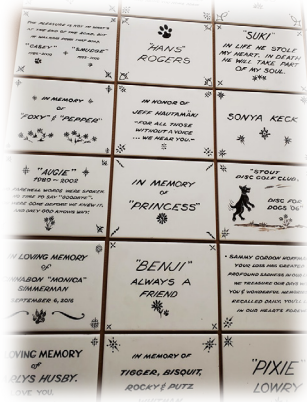 THE PLEASURE IS NOT IN WHAT'S
AT THE END OF THE ROAD, BUT
"CASEY" "SMUDGE"
"HANS"
ROGERS
"SUKI"
IN LIFE HE STOLE
MY HEART. IN DEATH
HE WILL TAKE PART
OF MY SOUL.
IN MEMORY
OF
"FOXY" & "PEPPER"
IN HONOR OF
JEFF HAUTAMAKI
-FOR ALL THOSE
WITHOUT A VOICE
... WE HEAR YOU.
SONYA KECK
"AUGIE"
1989 - 2002
WORDS WERE SPOKEN.
TIME TO SAY "GOODBYE".
GONE BEFORE WE KNEW IT,
AND ONLY GOD KNOWS WHY.
IN MEMORY
OF
"PRINCESS"
"STOUT
DISC GOLF CLUB"
DISC FOR
DOGS
LOVING MEMORY
OF
"MONICA"
SIMMERMAN
SEPTEMBER 6, 2016
"BENJI"
ALWAYS A
FRIEND
SAMMY GORDON
YOUR LOSS HAS CREATED
PROFOUND SADNESS IN OUR
WE TREASURE OUR
YOU & WONDERFUL
RECALLED DAILY, YOU'LL
IN OUR HEARTS
LOVING MEMORY
OF
HUSBY.
LOVE YOU.
IN MEMORY OF
TIGGER, BISQUIT,
ROCKY & PUTZ
"PIXIE"
LOWRY